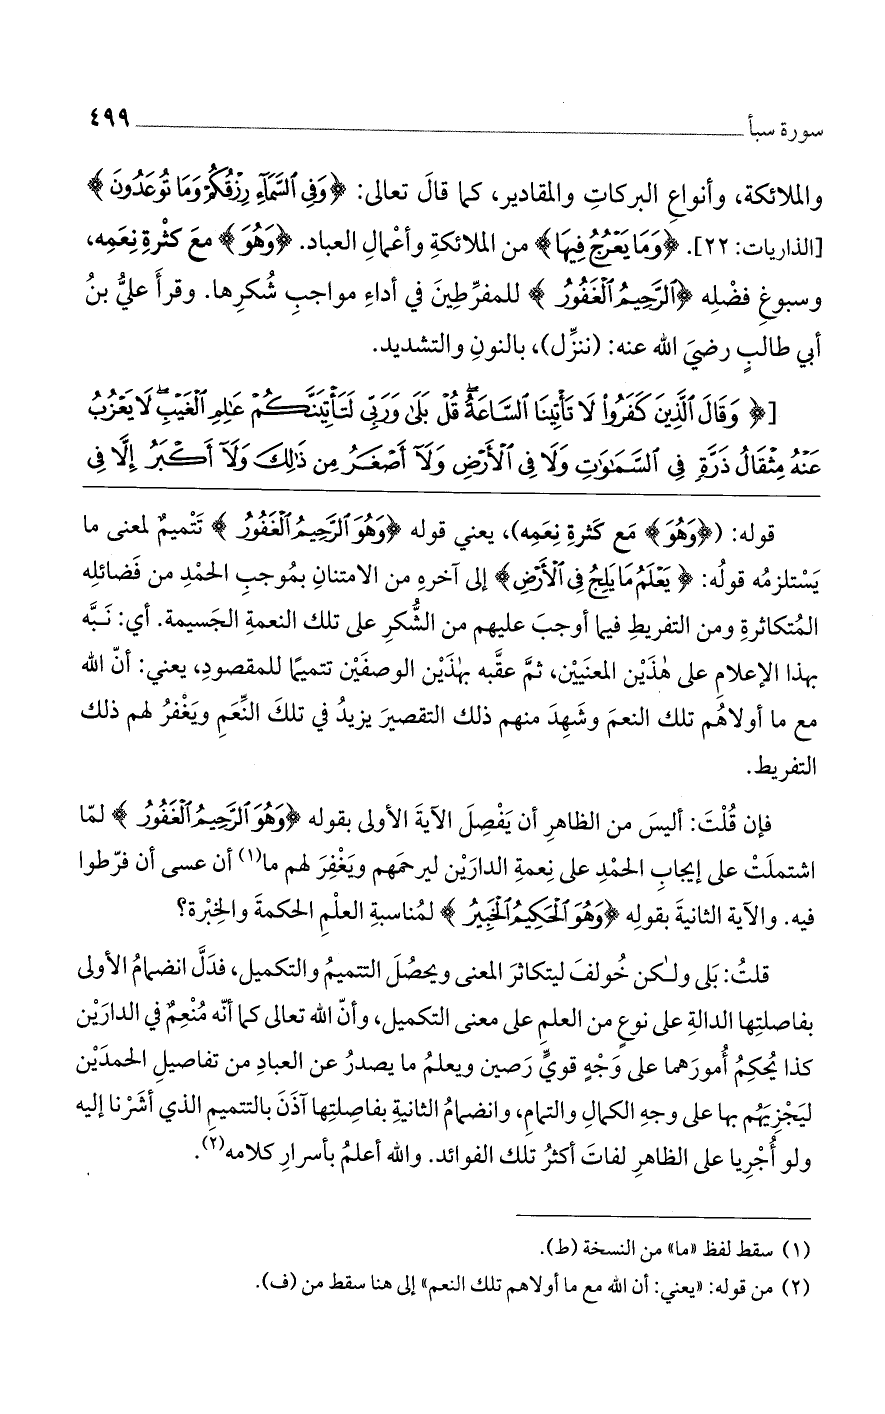 سورة سبأ ٤٩٩
والملائكة، وأنواعِ البركاتِ والمقادير، كما قالَ تعالى: ﴿وَفِى ٱلسَّمَآءِ رِزْقُكُمْ وَمَا تُوعَدُونَ﴾
[الذاريات: ٢٢]. ﴿وَمَا يَعْرُجُ فِيهَا﴾ من الملائكةِ وأعْمالِ العباد. ﴿وَهُوَ﴾ معَ كثْرةِ نِعَمِه،
وسبوغِ فضْلِه ﴿ٱلرَّحِيمُ ٱلْغَفُورُ﴾ للمفرِّطِينَ في أداءِ مواجبِ شُكرِها. وقرأَ عليُّ بنُ
أبي طالبٍ رضيَ الله عنه: (ننزِّل)، بالنونِ والتشديد.
[﴿وَقَالَ ٱلَّذِينَ كَفَرُوا۟ لَا تَأْتِينَا ٱلسَّاعَةُ ۖ قُلْ بَلَىٰ وَرَبِّى لَتَأْتِيَنَّكُمْ عَٰلِمِ ٱلْغَيْبِ ۖ لَا يَعْزُبُ
عَنْهُ مِثْقَالُ ذَرَّةٍ فِى ٱلسَّمَٰوَٰتِ وَلَا فِى ٱلْأَرْضِ وَلَآ أَصْغَرُ مِن ذَٰلِكَ وَلَآ أَكْبَرُ إِلَّا فِى
قوله: (﴿وَهُوَ﴾ مَع كَثرةِ نِعَمِه)، يعني قوله ﴿وَهُوَ ٱلرَّحِيمُ ٱلْغَفُورُ﴾ تَتْميمٌ لمعنى ما
يَسْتلزمُه قولُه: ﴿يَعْلَمُ مَا يَلِجُ فِى ٱلْأَرْضِ﴾ إلى آخرهِ من الامتنانِ بمُوجبِ الحمْدِ من فَضائلِه
المُتكاثرةِ ومن التفريطِ فيما أوجبَ عليهم من الشُّكرِ على تلك النعمةِ الجَسيمة. أي: نَبَّه
بهذا الإعلامِ على هٰذَيْن المعنَيَيْن، ثمَّ عقَّبه بهٰذَيْن الوصفَيْن تتميمًا للمقصودِ، يعني: أنّ الله
مع ما أولاهُم تلك النعمَ وشَهِدَ منهم ذلك التقصيرَ يزيدُ في تلكَ النِّعَمِ ويَغْفرُ لهم ذلك
التفريط.
فإن قُلْتَ: أليسَ من الظاهرِ أن يَفْصِلَ الآيةَ الأولى بقوله ﴿وَهُوَ ٱلرَّحِيمُ ٱلْغَفُورُ﴾ لمّا
اشتملَتْ على إيجابِ الحمْدِ على نِعمةِ الدارَيْن ليرحمَهم ويَغْفِرَ لهم ما(١) أن عسى أن فرّطوا
فيه. والآية الثانيةَ بقولِه ﴿وَهُوَ ٱلْحَكِيمُ ٱلْخَبِيرُ﴾ لمُناسبةِ العلْمِ الحكمةَ والخِبْرة؟
قلتُ: بَلى ولٰكن خُولفَ ليتكاثرَ المعنى ويحصُلَ التتميمُ والتكميل، فدَلَّ انضمامُ الأولى
بفاصلتِها الدالةِ على نوعٍ من العلمِ على معنى التكميل، وأنّ الله تعالى كما أنّه مُنْعِمٌ في الدارَيْن
كذا يُحكِمُ أُمورَهما على وَجْهٍ قويٍّ رَصين ويعلمُ ما يصدرُ عن العبادِ من تفاصيلِ الحمدَيْن
ليَجْزِيَهُم بها على وجهِ الكمالِ والتمامِ، وانضمامُ الثانيةِ بفاصِلتِها آذَنَ بالتتميمِ الذي أشَرْنا إليه
ولو أُجْرِيا على الظاهرِ لفاتَ أكثرُ تلك الفوائد. والله أعلمُ بأسرارِ كلامه(٢).
(١) سقط لفظ «ما» من النسخة (ط).
(٢) من قوله: «يعني: أن الله مع ما أولاهم تلك النعم» إلى هنا سقط من (ف).